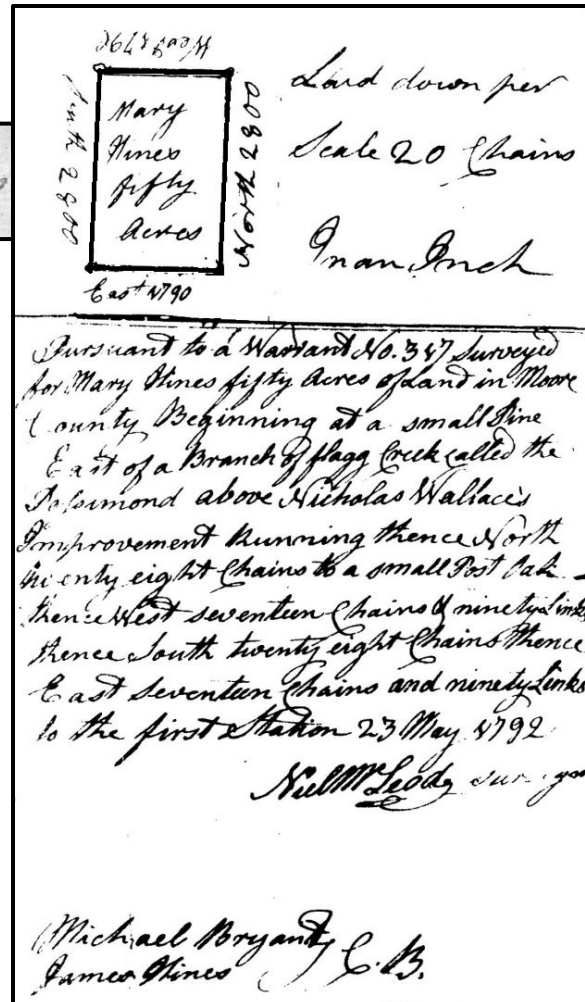 West 1790
South 2800
Mary
Hines
fifty
Acres
North 2800
East 1790
Laid down per
Scale 20 Chains
In an Inch
Pursuant to a Warrant No. 347 Surveyed
for Mary Hines fifty Acres of Land in Moore
County Beginning at a small Pine
East of a Branch of flagg Creek called the
above Nicholas Wallace's
Improvement Running thence North
twenty eight Chains to a small Post Oak
thence West seventeen Chains & ninety Links
thence South twenty eight Chains thence
East seventeen Chains and ninety Links
to the first Station 23 May 1792
Niel McLeod
Michael Bryant
James Hines
C. B.